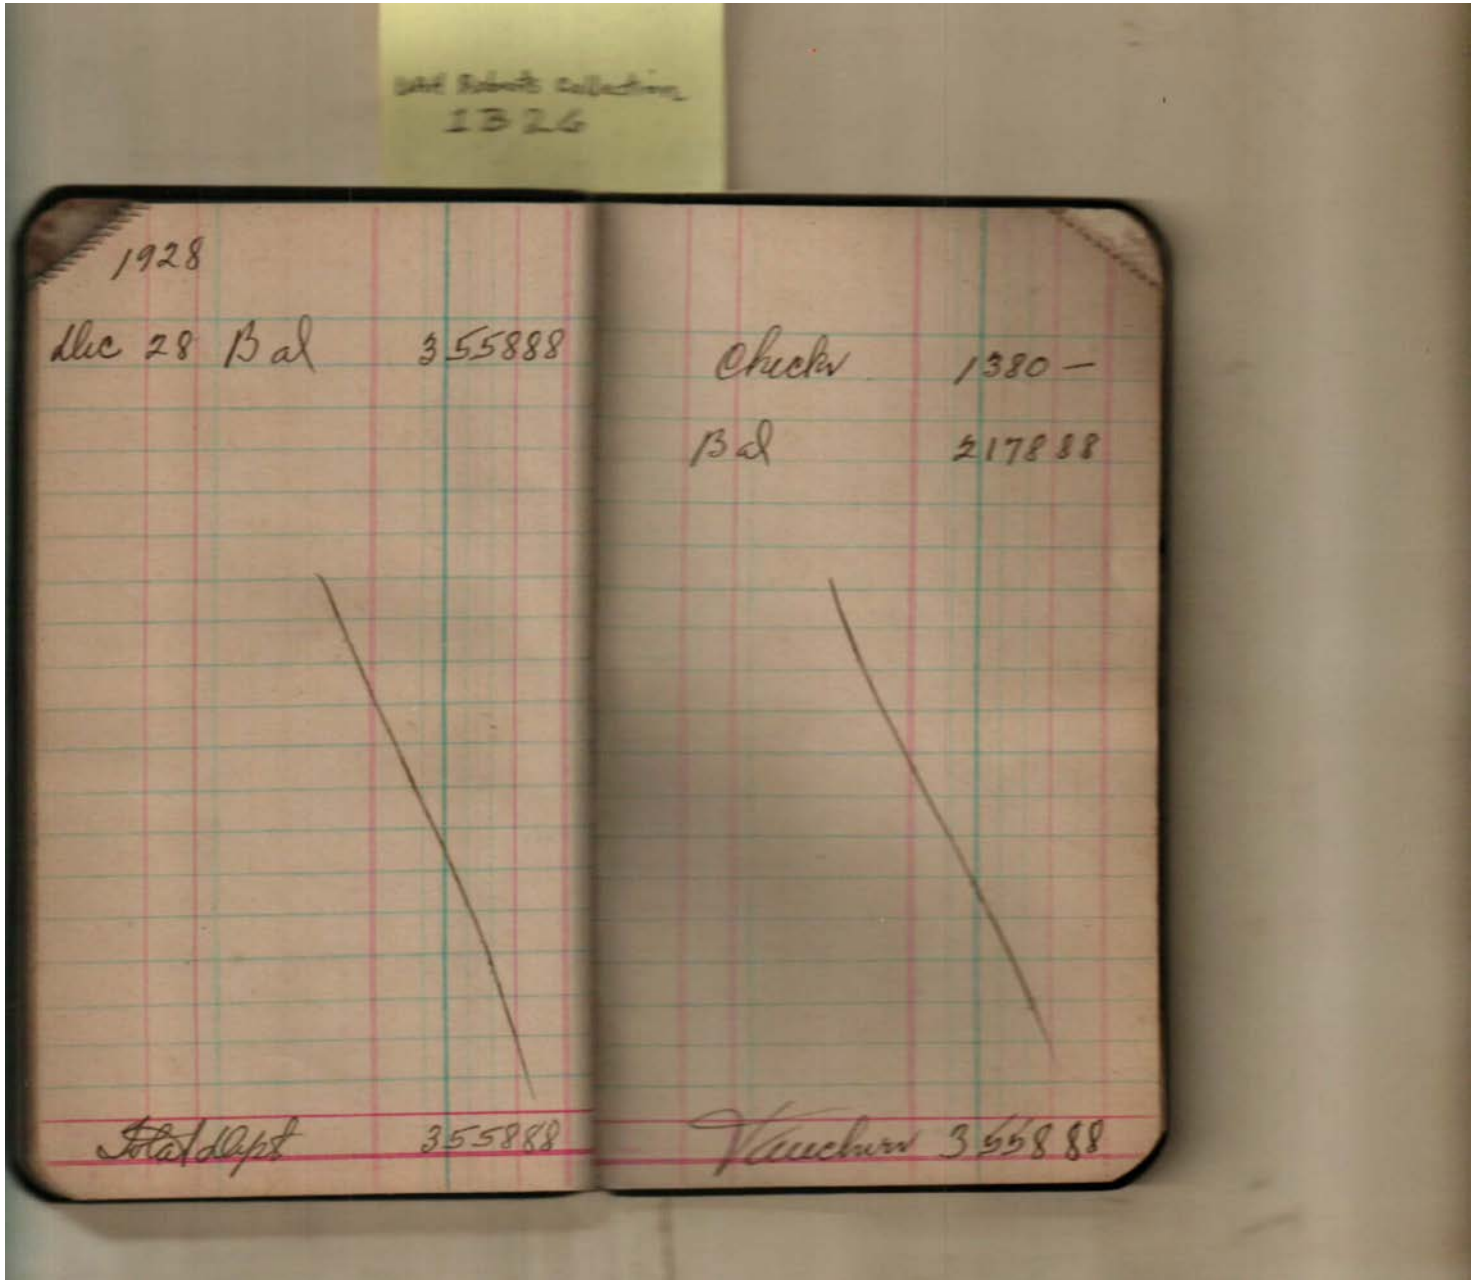 UAH Roberts Collection
1B26
1928
Dec 28 Bal 355888
Total Dept 355888
Checks 1380 —
Bal 217888
Vouchers 355888